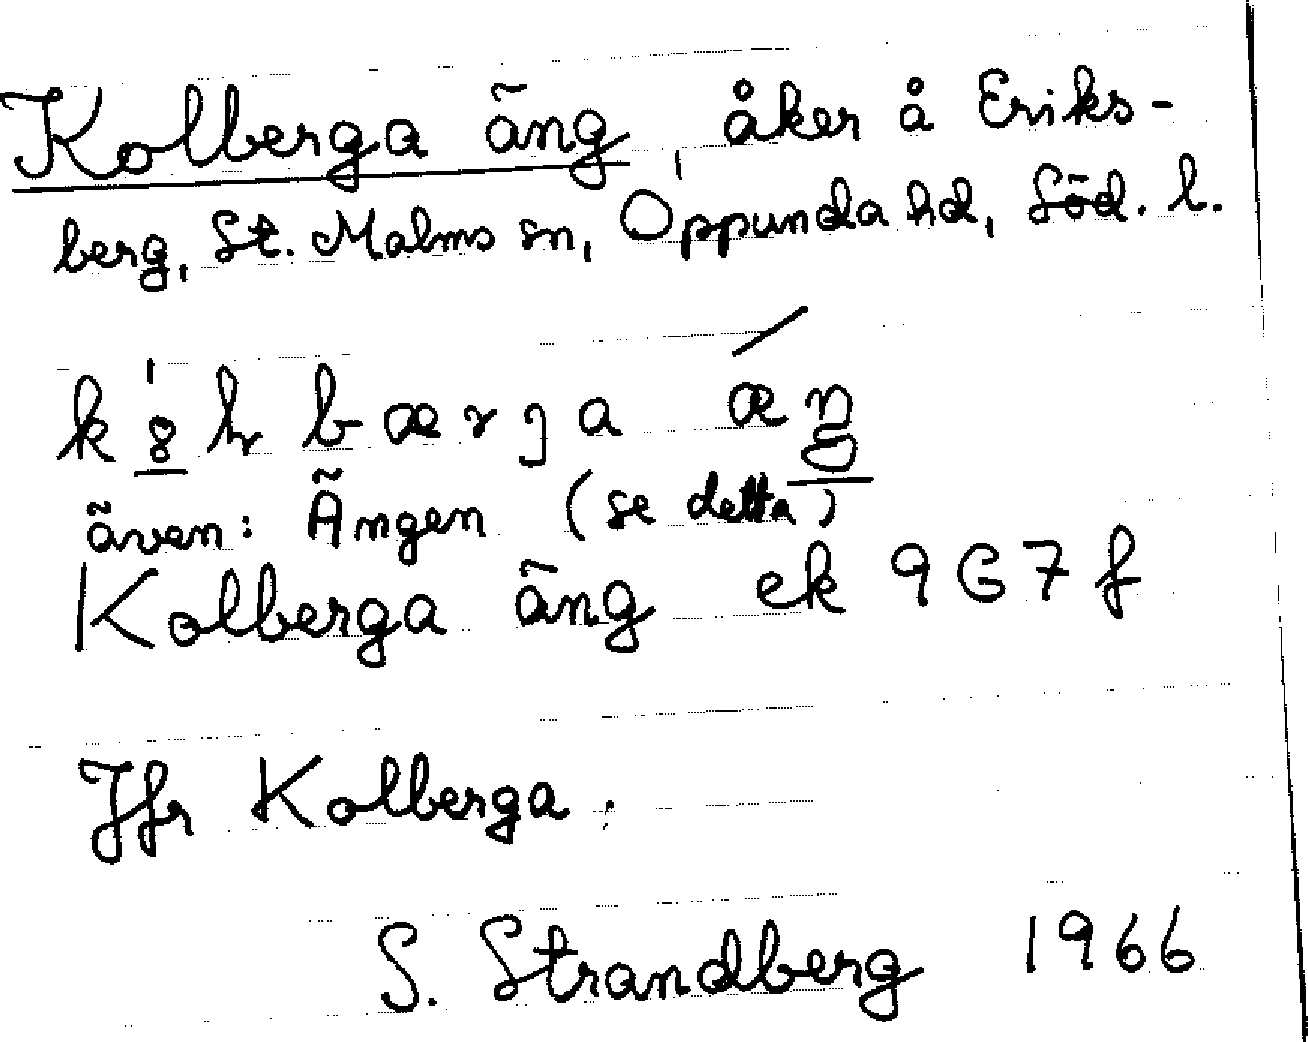 Kolberga äng, åker å Eriks-
berg, St. Malms sn, Oppunda hd, Söd. l.
även: Ängen (se detta)
Kolberga äng ek 9G7f
Jfr Kolberga.
S. Strandberg 1966